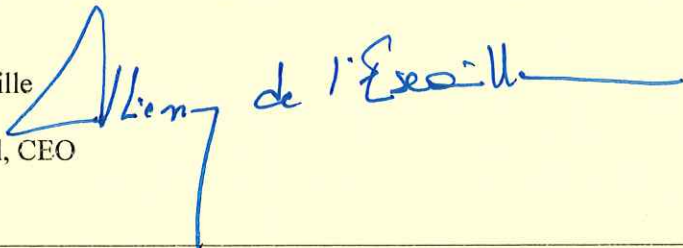 ille
Thierry de l'Escaille
l, CEO